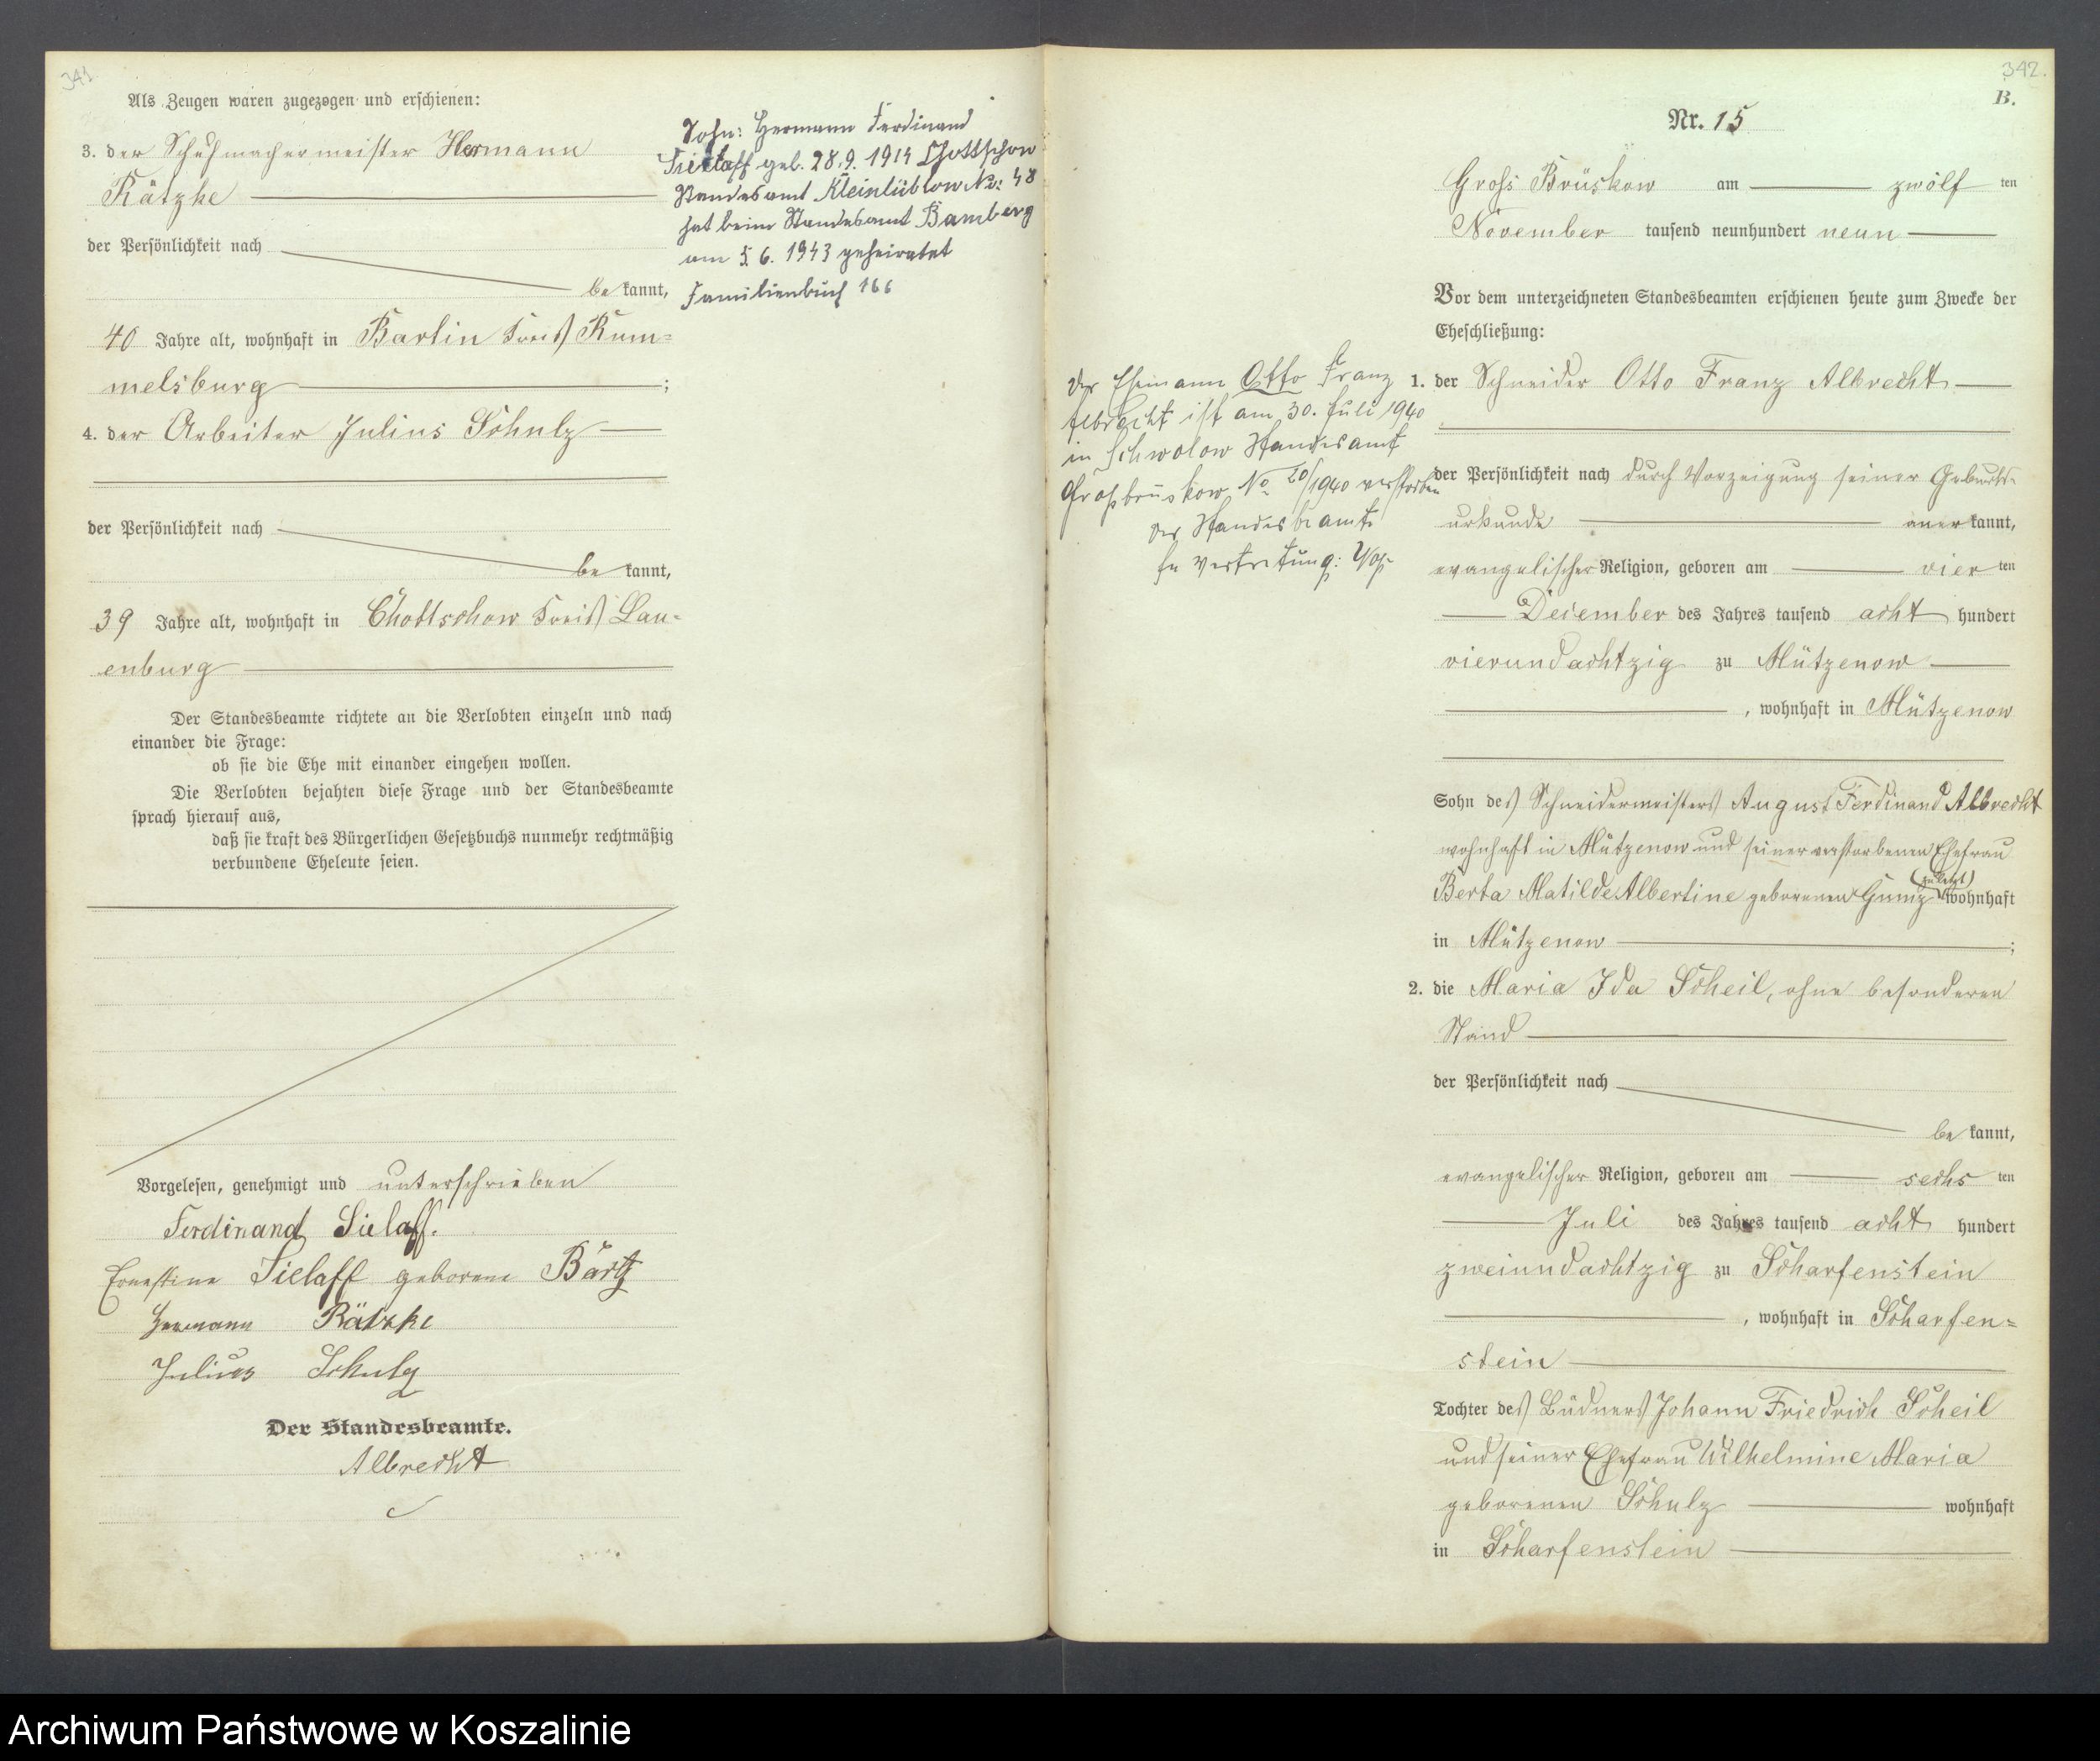 341
Als Zeugen waren zugezogen und erschienen:
3. der Schuhmachermeister Hermann
Rätzke
der Persönlichkeit nach
be kannt,
40 Jahre alt, wohnhaft in Bartin Kreis Rum=
melsburg ;
4. der Arbeiter Julius Schulz
der Persönlichkeit nach
be kannt,
39 Jahre alt, wohnhaft in Chottschow Kreis Lau=
enburg
Der Standesbeamte richtete an die Verlobten einzeln und nach
einander die Frage:
ob sie die Ehe mit einander eingehen wollen.
Die Verlobten bejahten diese Frage und der Standesbeamte
sprach hierauf aus,
daß sie kraft des Bürgerlichen Gesetzbuchs nunmehr rechtmäßig
verbundene Eheleute seien.
Vorgelesen, genehmigt und unterschrieben
Ferdinand Sielaff.
Ernestine Sielaff geborene Bartz
Hermann Rätzke
Julius Schulz
Der Standesbeamte.
Albrecht
Sohn: Hermann Ferdinand
Sielaff geb. 28.9.1914 Chottschow
Standesamt Kleinlüblow No: 48
hat beim Standesamt Bamberg
am 5.6.1943 geheiratet
Familienbuch 166
342.
B.
Nr. 15
Gross Brüskow am zwölf ten
November tausend neunhundert neun
Vor dem unterzeichneten Standesbeamten erschienen heute zum Zwecke der
Eheschließung:
1. der Schneider Otto Franz Albrecht
der Persönlichkeit nach durch Vorzeigung seiner Geburts=
urkunde anerkannt,
evangelischer Religion, geboren am vier ten
December des Jahres tausend acht hundert
vierundachtzig zu Mützenow
, wohnhaft in Mützenow
Sohn des Schneidermeisters August Ferdinand Albrecht
wohnhaft in Mützenow und seiner verstorbenen Ehefrau
Berta Matilde Albertine geborenen (zuletzt) wohnhaft
in Mützenow ;
2. die Maria Ida Scheil, ohne besonderen
Stand
der Persönlichkeit nach
be kannt,
evangelischer Religion, geboren am sechs ten
Juli des Jahres tausend acht hundert
zweiundachtzig zu Scharfenstein
, wohnhaft in Scharfen=
stein
Tochter des Büdners Johann Friedrich Scheil
und seiner Ehefrau Wilhelmine Maria
geborenen Schulz wohnhaft
in Scharfenstein
Der Ehemann Otto Franz
Albrecht ist am 30. Juli 1940
in Schwolow Standesamt
Großbrüskow No 20/1940 verstorben
Der Standesbeamte
In Vertretung:
Archiwum Państwowe w Koszalinie